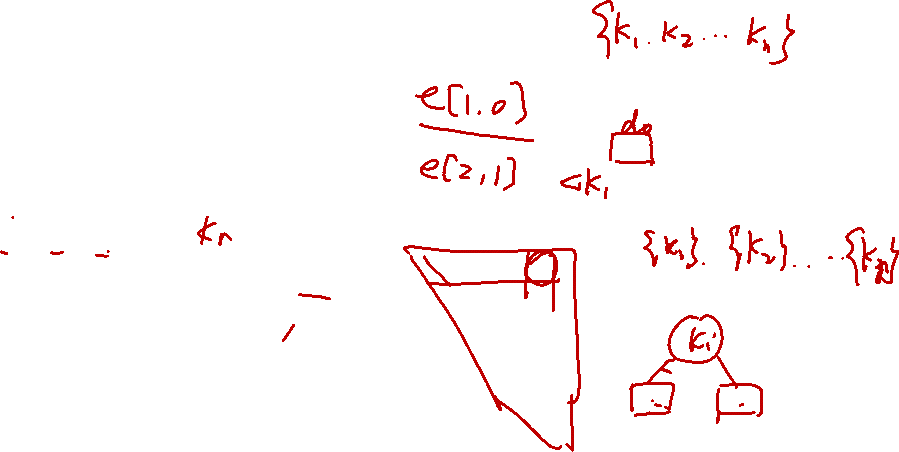 {k₁. k₂ ... kₙ}
e[1.0]
e[2,1]
d₀
<k₁
kₙ
{k₁}. {k₂}. . ...{kₙ}
kᵢ